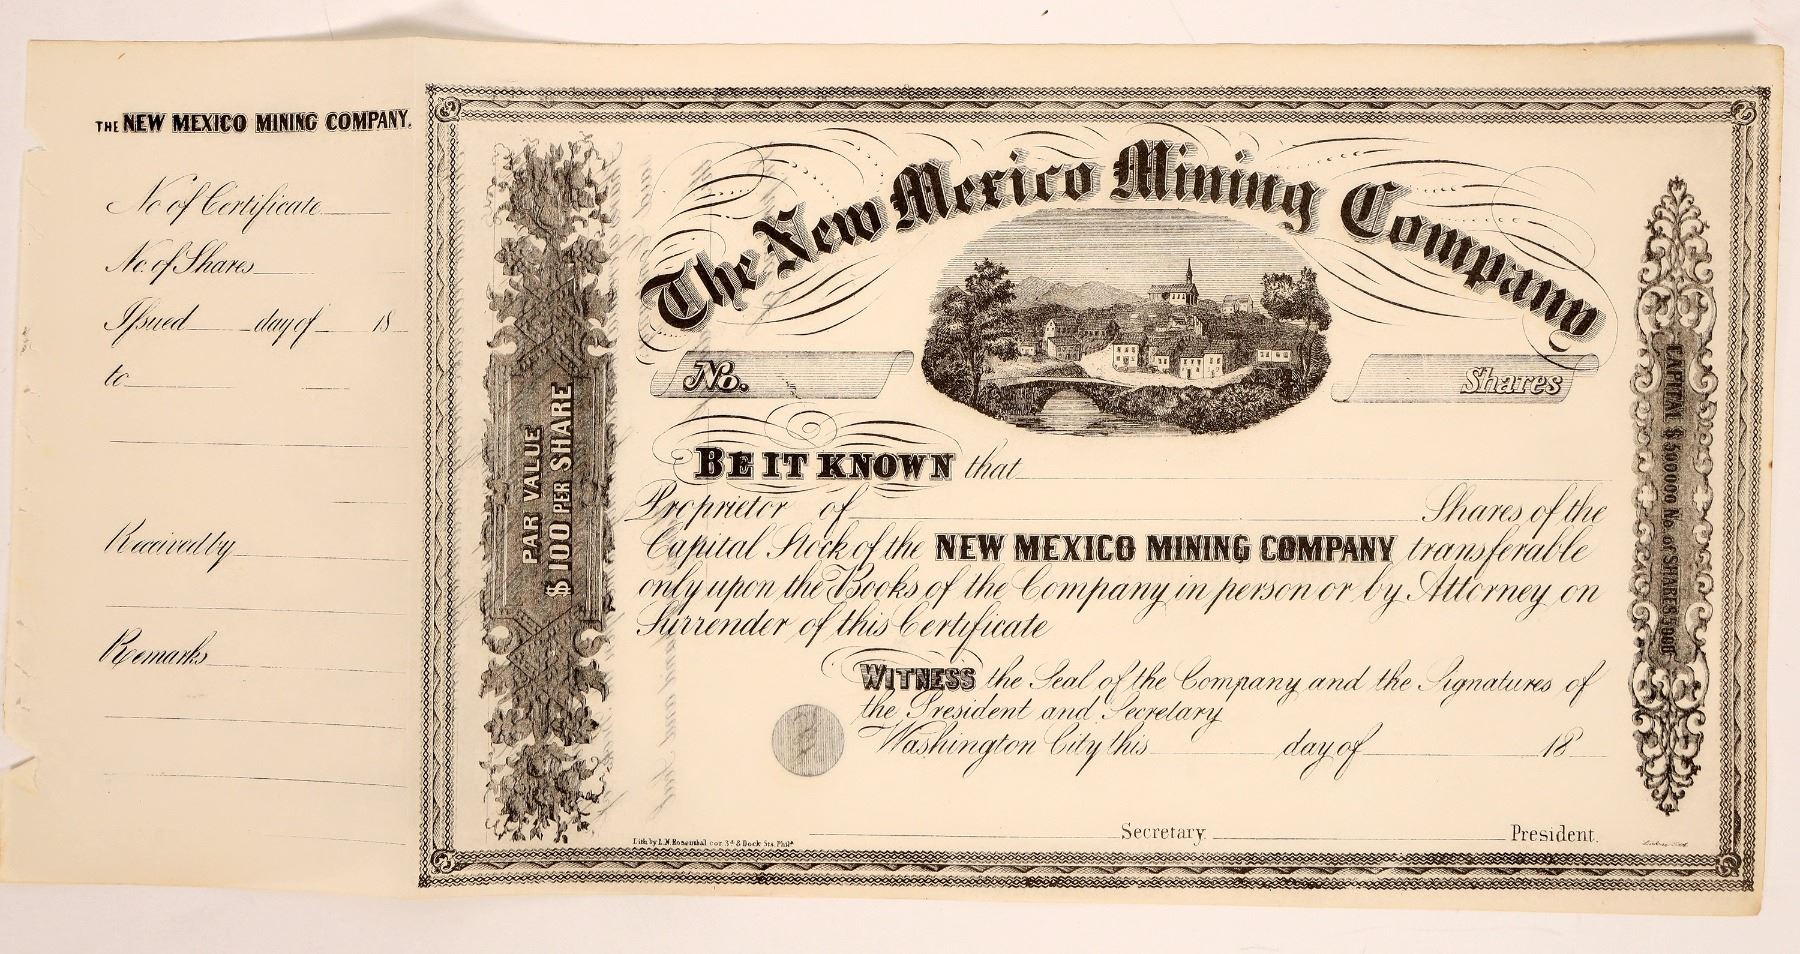 THE NEW MEXICO MINING COMPANY.
No of Certificate
No. of Shares
Issued day of 18
to
Received by
Remarks
PAR VALUE
$100 PER SHARE
The New Mexico Mining Company
No.
Shares
BE IT KNOWN that
Proprietor of Shares of the
Capital Stock of the NEW MEXICO MINING COMPANY transferable
only upon the Books of the Company in person or by Attorney on
Surrender of this Certificate
WITNESS the Seal of the Company and the Signatures of
the President and Secretary
Washington City this day of 18
Secretary President.
Lith by L.N. Rosenthal cor 3d & Dock Sts Phila
CAPITAL $500000 No. of SHARES 5000